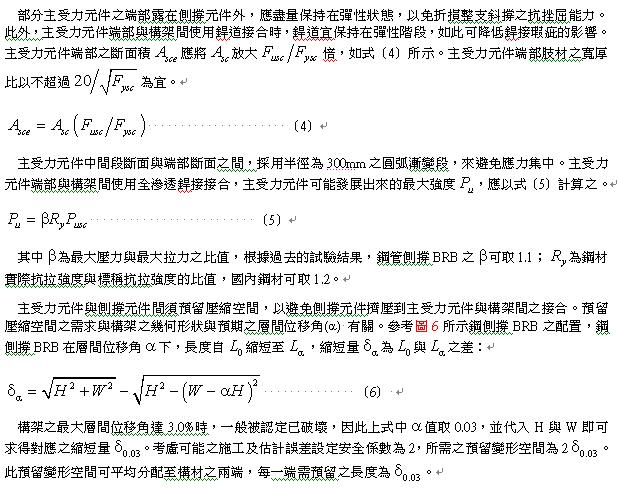 部分主受力元件之端部露在側撐元件外，應盡量保持在彈性狀態，以免折損整支斜撐之抗挫屈能力。
此外，主受力元件端部與構架間使用銲道接合時，銲道宜保持在彈性階段，如此可降低銲接瑕疵的影響。
主受力元件端部之斷面積 Asce 應將 Asc 放大 Fusc/Fysc 倍，如式〔4〕所示。主受力元件端部肢材之寬厚
比以不超過 20/√Fysc 為宜。
Asce = Asc(Fusc/Fysc)⋯⋯⋯⋯⋯⋯〔4〕
主受力元件中間段斷面與端部斷面之間，採用半徑為 300mm 之圓弧漸變段，來避免應力集中。主受力
元件端部與構架間使用全滲透銲接接合，主受力元件可能發展出來的最大強度 Pu，應以式〔5〕計算之。
Pu = βRyPusc⋯⋯⋯⋯⋯⋯〔5〕
其中 β 為最大壓力與最大拉力之比值，根據過去的試驗結果，鋼管側撐 BRB 之 β 可取 1.1； Ry 為鋼材
實際抗拉強度與標稱抗拉強度的比值，國內鋼材可取 1.2。
主受力元件與側撐元件間須預留壓縮空間，以避免側撐元件擠壓到主受力元件與構架間之接合。預留
壓縮空間之需求與構架之幾何形狀與預期之層間位移角(α) 有關。參考圖 6 所示鋼側撐 BRB 之配置，鋼
側撐 BRB 在層間位移角 α 下，長度自 L0 縮短至 Lα，縮短量 δα 為 L0 與 Lα 之差：
δα = √(H² + W²) − √(H² − (W − αH)²)⋯⋯⋯⋯⋯⋯〔6〕
構架之最大層間位移角達 3.0%時，一般被認定已破壞，因此上式中 α 值取 0.03，並代入 H 與 W 即可
求得對應之縮短量 δ0.03。考慮可能之施工及估計誤差設定安全係數為 2，所需之預留變形空間為 2 δ0.03。
此預留變形空間可平均分配至構材之兩端，每一端需預留之長度為 δ0.03。